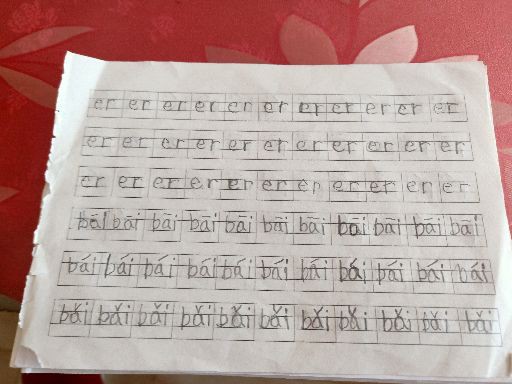 er er er er er er er er er er er
er er er er er er er er er er er
er er er er er er er er er er er
bāi bāi bāi bāi bāi bāi bāi bāi bāi bāi bāi
bái bái bái bái bái bái bái bái bái bái bái
bǎi bǎi bǎi bǎi bǎi bǎi bǎi bǎi bǎi bǎi bǎi